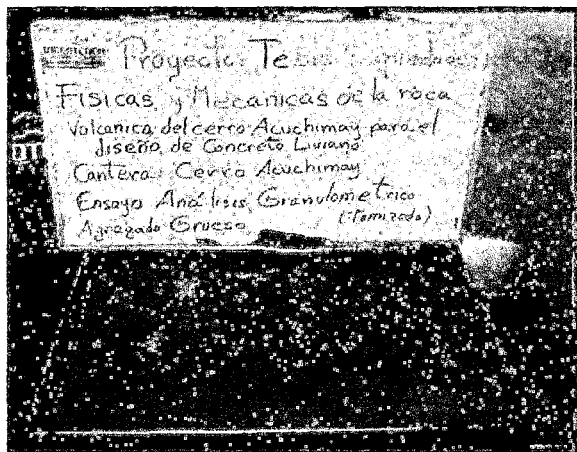 Proyecto: Tesis Propiedades
Fisicas y Mecanicas de la roca
Volcanica del cerro Acuchimay para el
diseño de Concreto Liviano
Cantera: Cerro Acuchimay
Ensayo Análisis Granulometrico
(Tamizado)
Agregado Grueso